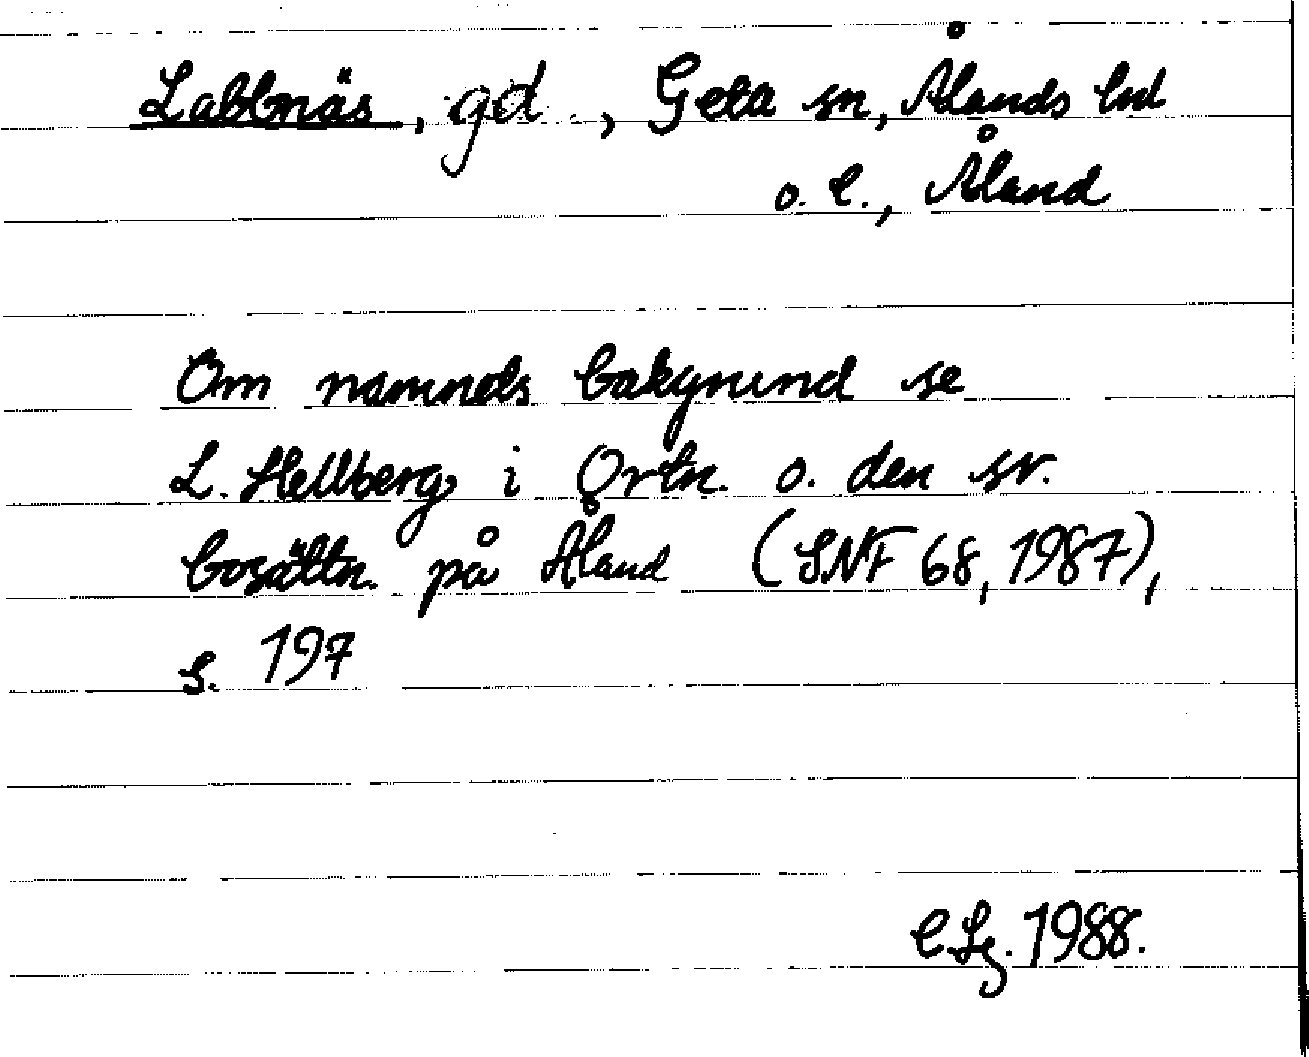 Labbnäs, gd., Geta sn, Ålands hd
o. l., Åland
Om namnets bakgrund se
L. Hellberg i Ortn. o. den sv.
bosättn. på Åland (SNF 68, 1987),
s. 197
1988.